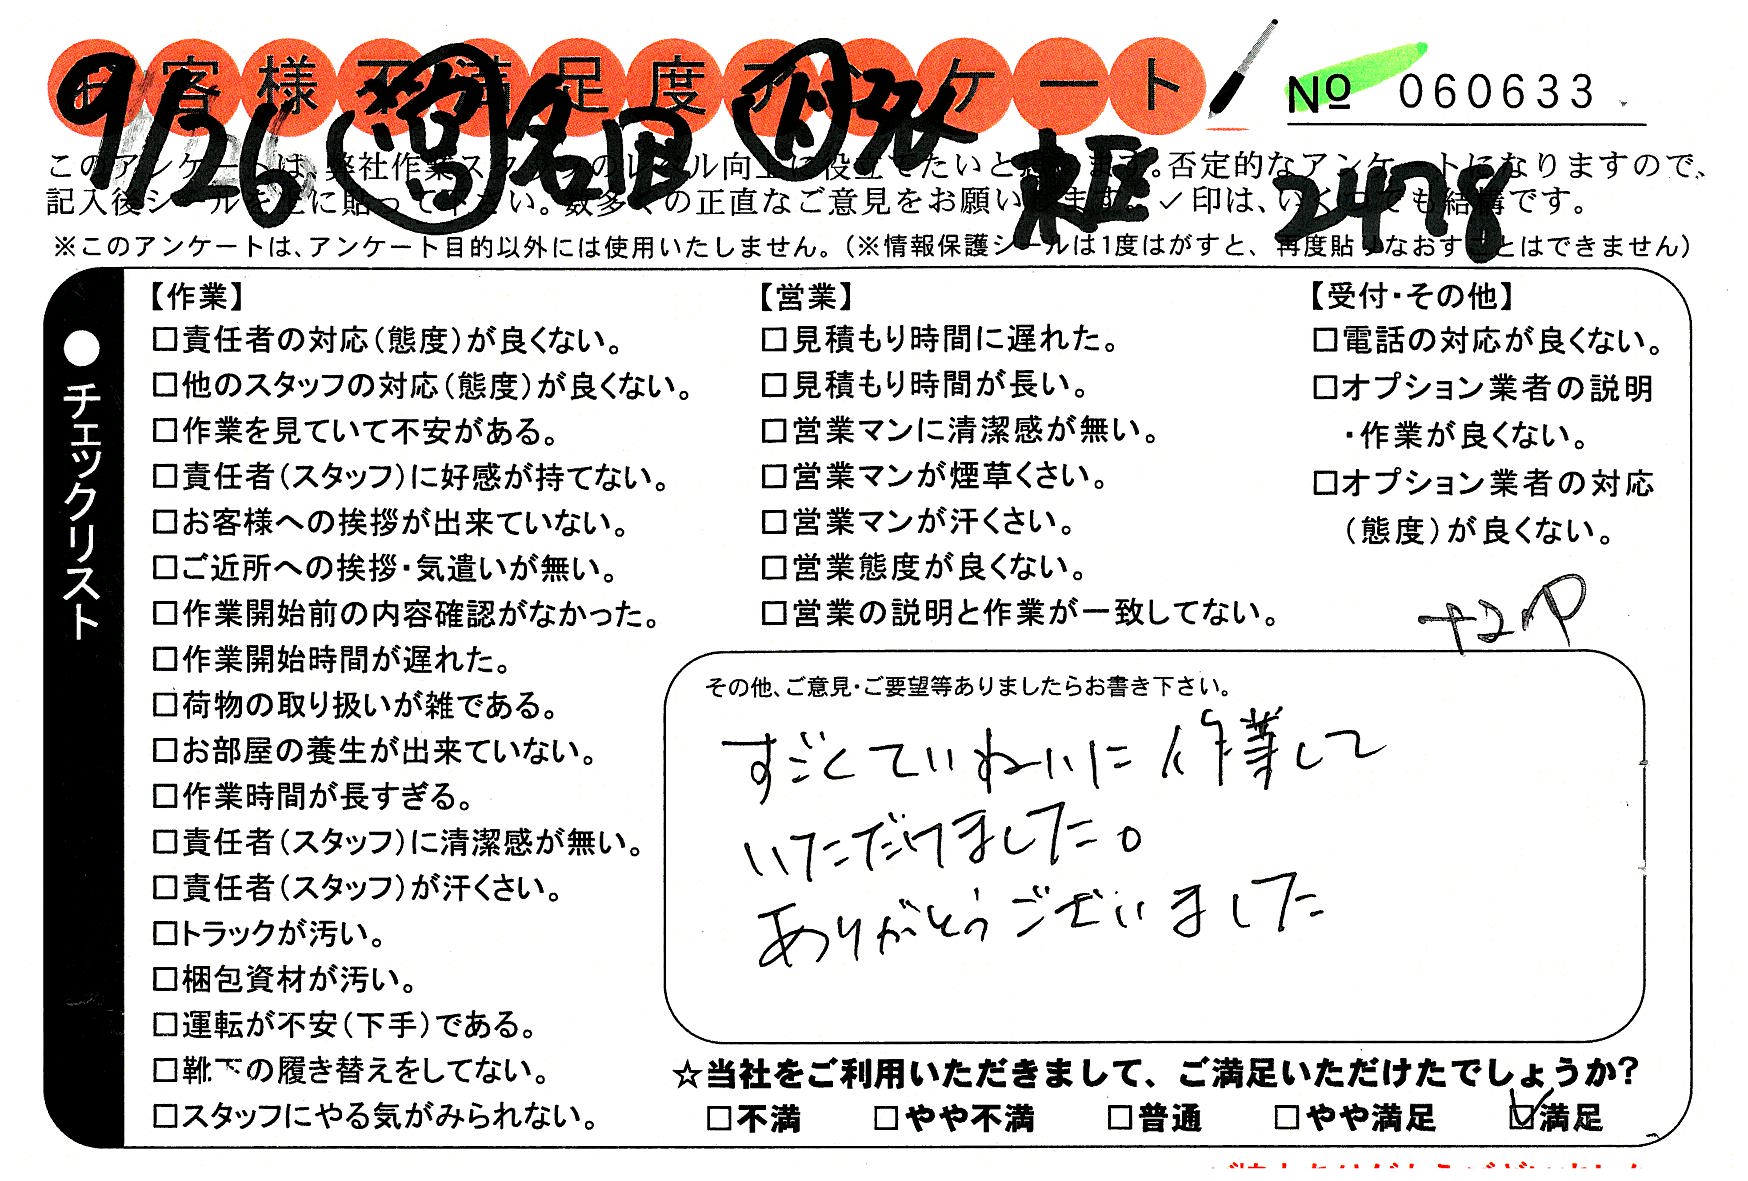 お客様不満足度アンケート
№ 060633
9/26
2478
このアンケートは、弊社作業スタッフのレベル向上に役立てたいと思います。否定的なアンケートになりますので、
記入後シールを上に貼って下さい。数多くの正直なご意見をお願いします。✓印は、いくつでも結構です。
※このアンケートは、アンケート目的以外には使用いたしません。(※情報保護シールは1度はがすと、再度貼りなおすことはできません)
●チェックリスト
【作業】
□責任者の対応(態度)が良くない。
□他のスタッフの対応(態度)が良くない。
□作業を見ていて不安がある。
□責任者(スタッフ)に好感が持てない。
□お客様への挨拶が出来ていない。
□ご近所への挨拶・気遣いが無い。
□作業開始前の内容確認がなかった。
□作業開始時間が遅れた。
□荷物の取り扱いが雑である。
□お部屋の養生が出来ていない。
□作業時間が長すぎる。
□責任者(スタッフ)に清潔感が無い。
□責任者(スタッフ)が汗くさい。
□トラックが汚い。
□梱包資材が汚い。
□運転が不安(下手)である。
□靴下の履き替えをしてない。
□スタッフにやる気がみられない。
【営業】
□見積もり時間に遅れた。
□見積もり時間が長い。
□営業マンに清潔感が無い。
□営業マンが煙草くさい。
□営業マンが汗くさい。
□営業態度が良くない。
□営業の説明と作業が一致してない。
【受付・その他】
□電話の対応が良くない。
□オプション業者の説明
・作業が良くない。
□オプション業者の対応
(態度)が良くない。
+2P
その他、ご意見・ご要望等ありましたらお書き下さい。
すごくていねいに作業して
いただけました。
ありがとうございました
☆当社をご利用いただきまして、ご満足いただけたでしょうか?
□不満 □やや不満 □普通 □やや満足 ☑満足